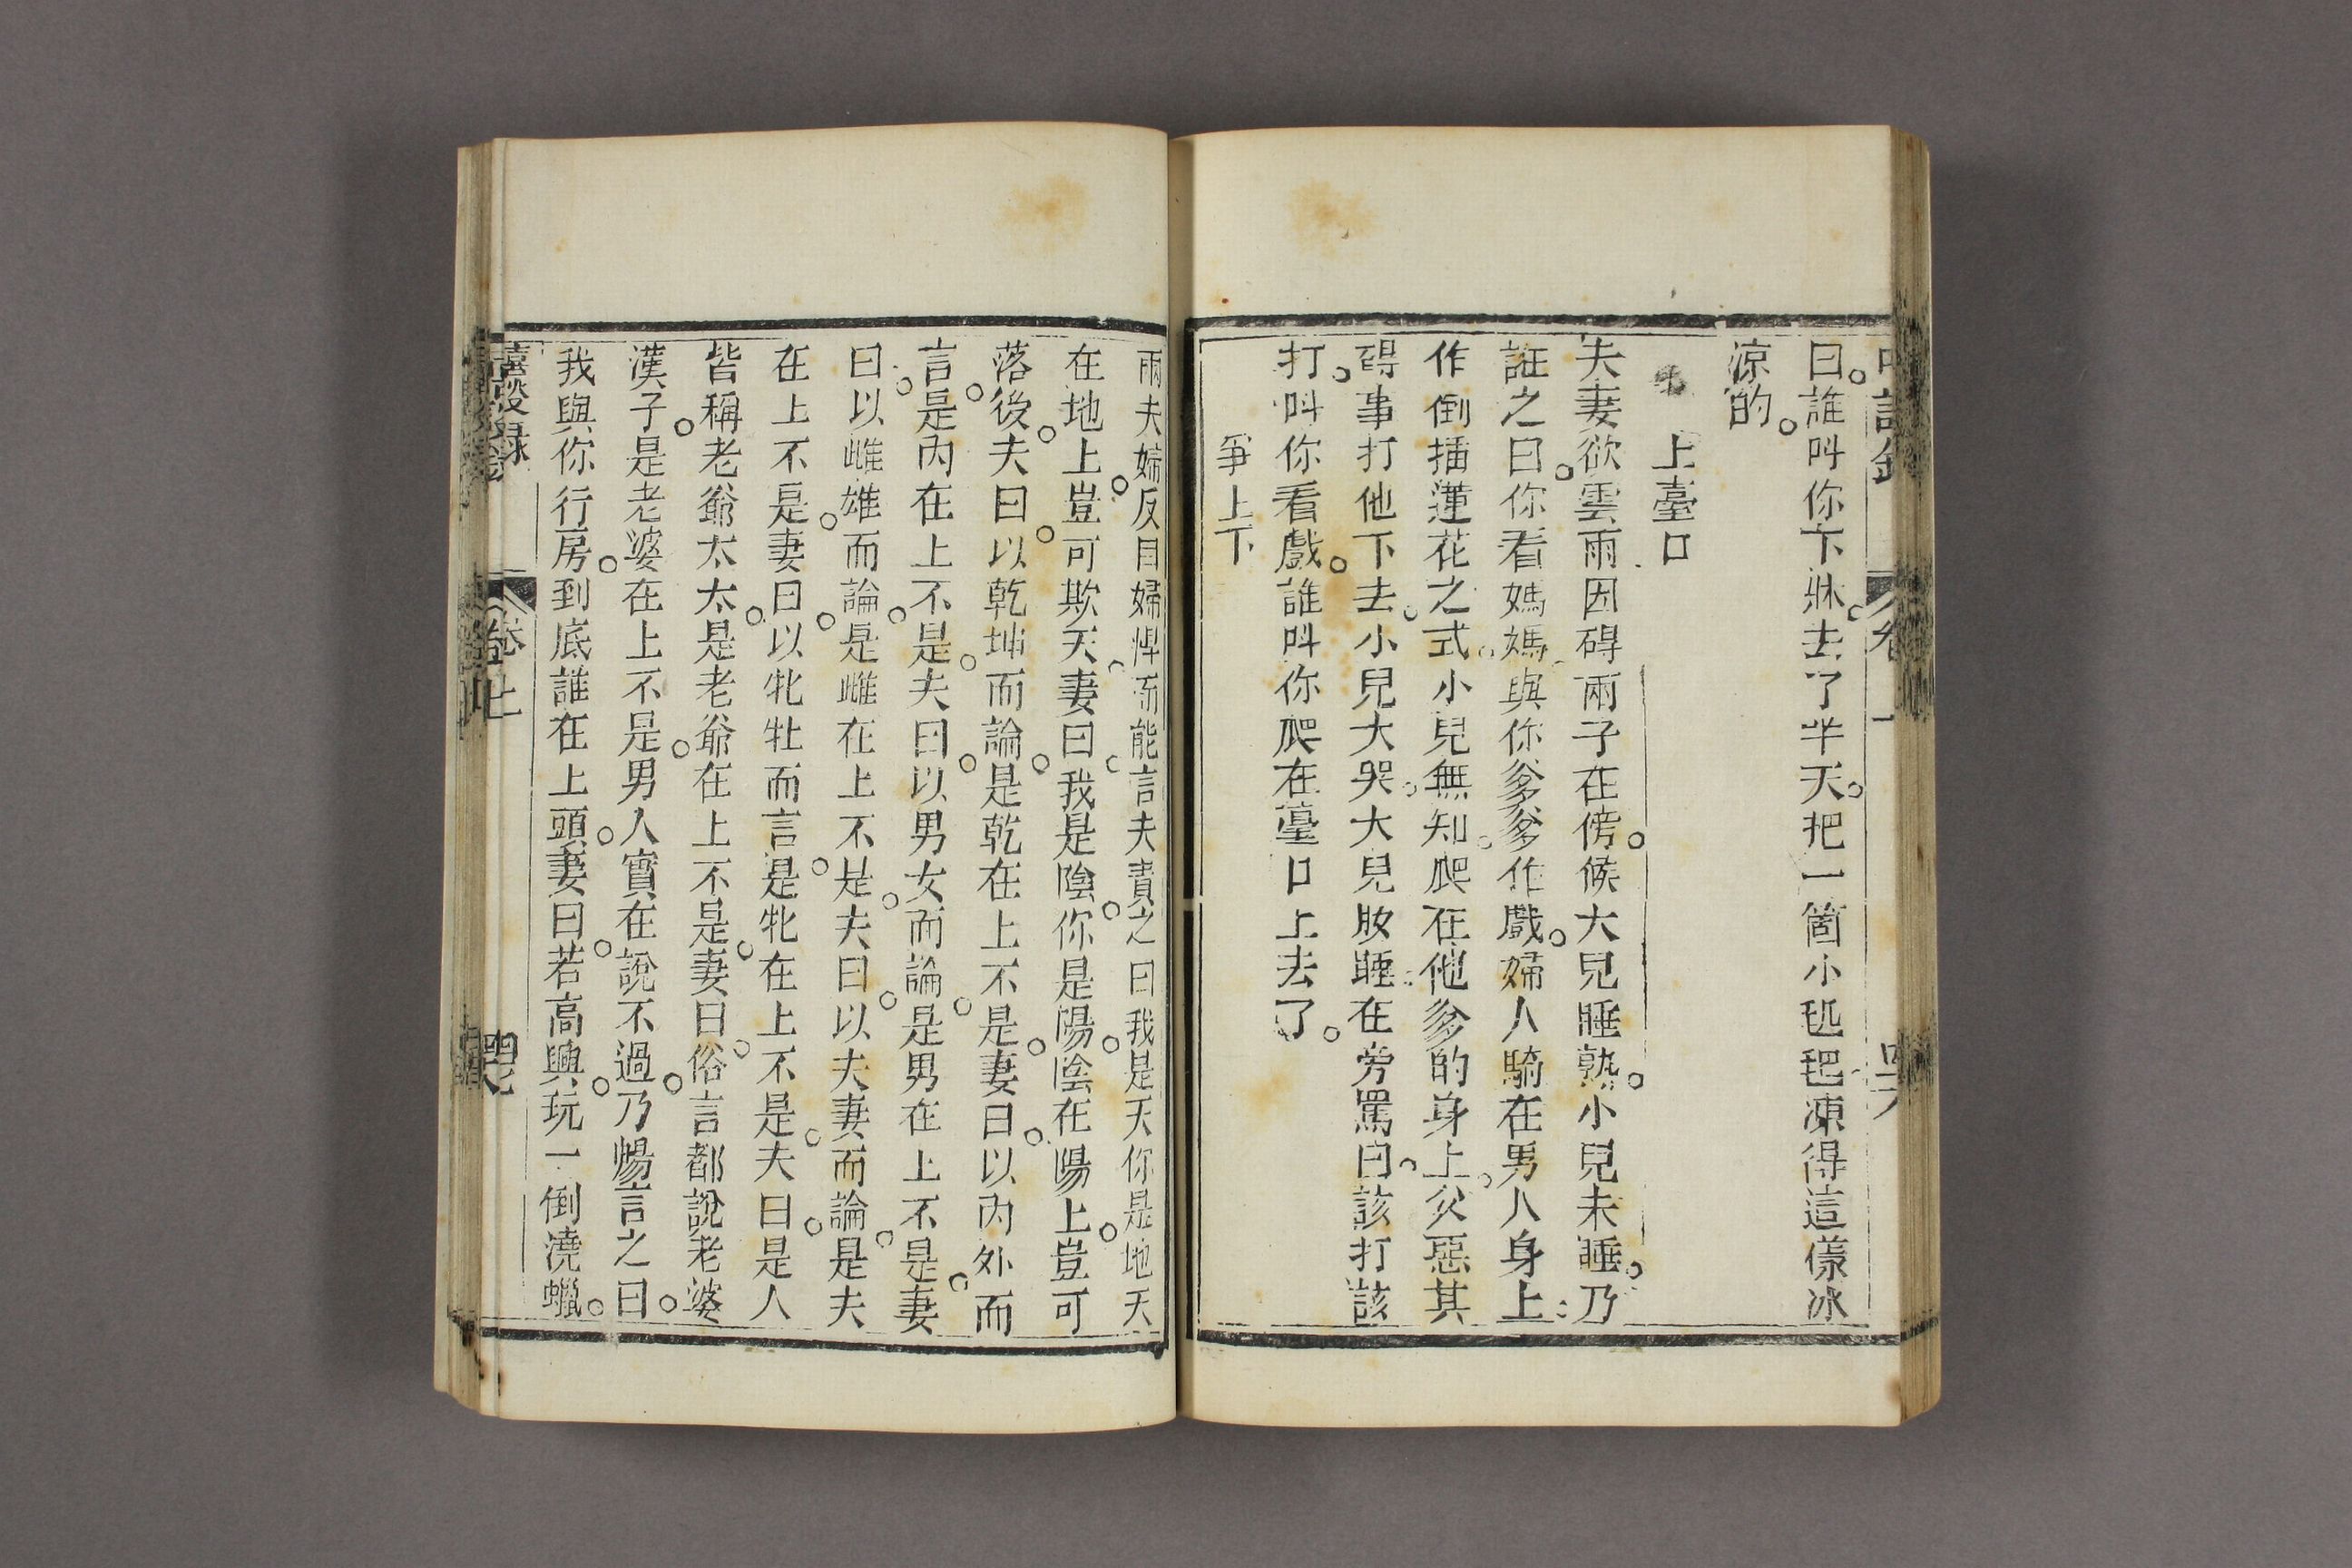 曰誰呌你下牀去了半天把一箇小毡毡凍得這樣冰
涼的
上臺口
夫妻欲雲雨因碍兩子在傍候大兒睡熟小兒未睡乃
誑之曰你看媽媽與你爹爹作戲婦人騎在男人身上
作倒插蓮花之式小兒無知爬在他爹的身上父惡其
碍事打他下去小兒大哭大兒妝睡在旁罵曰該打該
打呌你看戲誰呌你爬在臺口上去了
爭上下
兩夫婦反目婦悍而能言夫責之曰我是天你是地天
在地上豈可欺天妻曰我是陰你是陽陰在陽上豈可
落後夫曰以乾坤而論是乾在上不是妻曰以內外而
言是內在上不是夫曰以男女而論是男在上不是妻
曰以雌雄而論是雌在上不是夫曰以夫妻而論是夫
在上不是妻曰以牝牡而言是牝在上不是夫曰是人
皆稱老爺太太是老爺在上不是妻曰俗言都說老婆
漢子是老婆在上不是男人實在說不過乃暢言之曰
我與你行房到底誰在上頭妻曰若高興玩一倒澆蠟
卷上